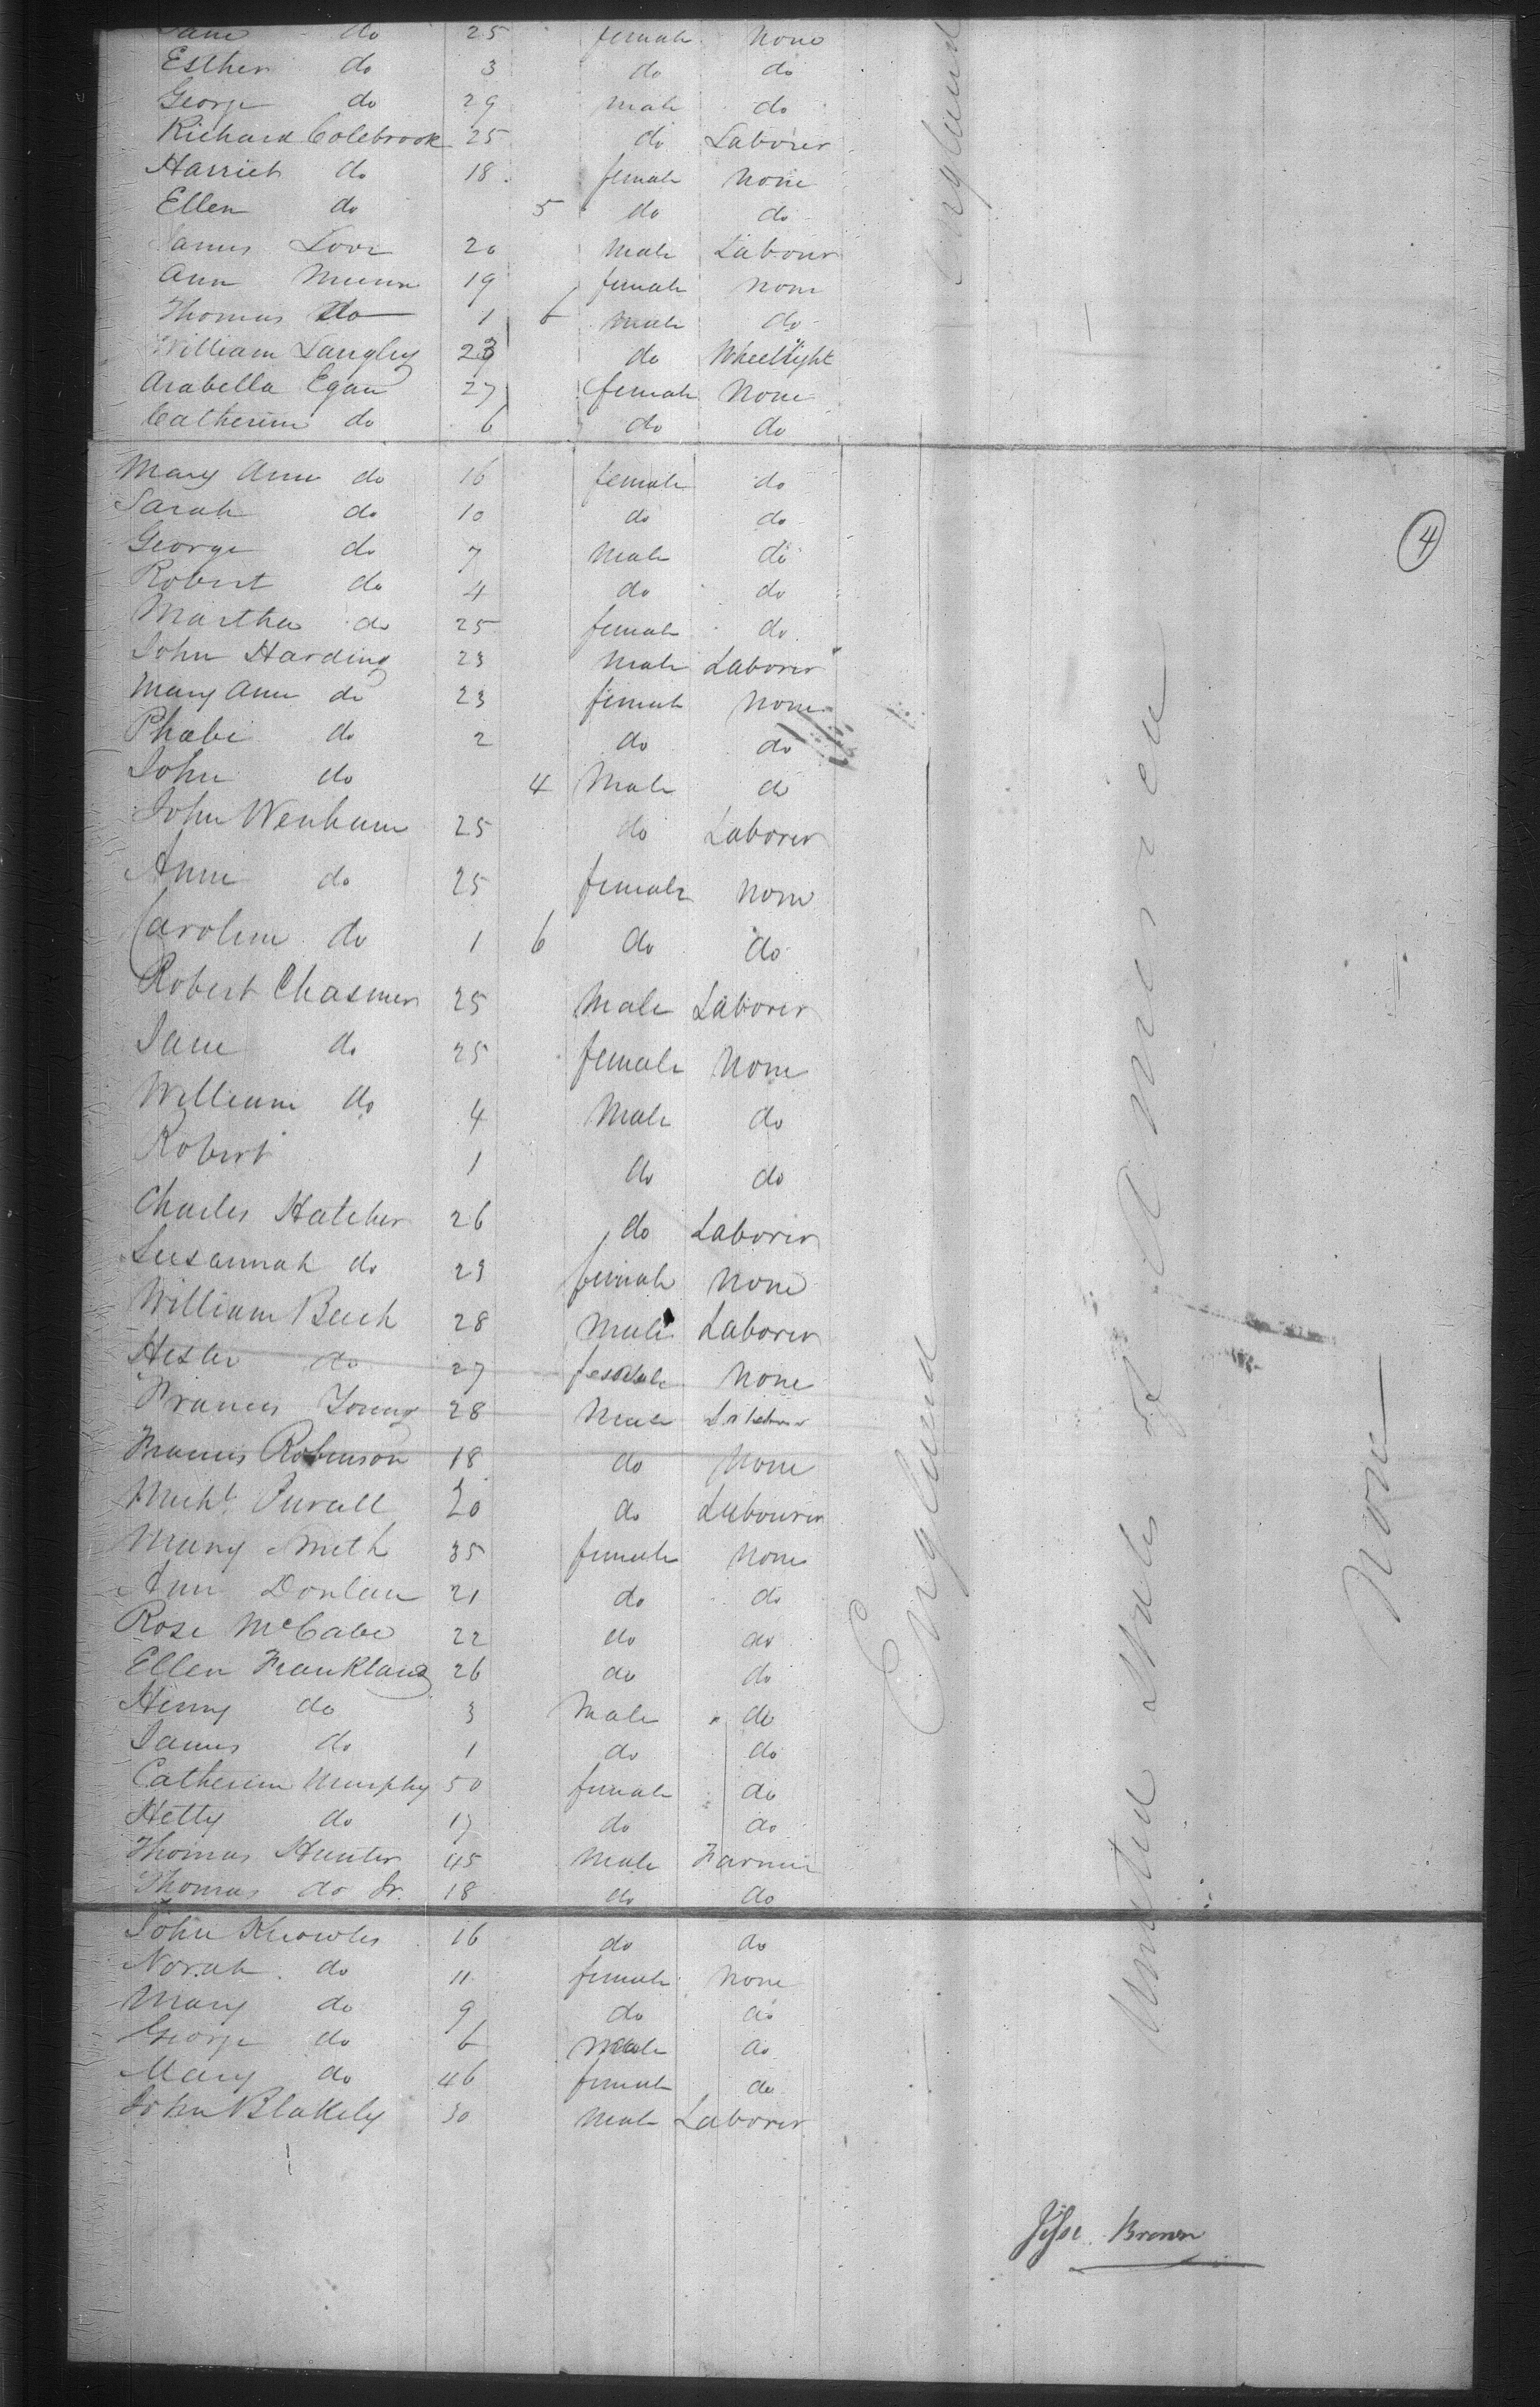 Jane do 25 female None
Esther do 3 do do
George do 29 male do
Richard Colebrook 25 do Laborer
Harriet do 18 female None
Ellen do 5 do do
James Love 20 male Labour
Ann Munn 19 female None
Thomas do 1 6 male do
William Langley 23 do Wheelright
Arabella Egan 27 female None
Catherine do 6 do do
England
Mary Ann do 16 female do
Sarah do 10 do do
George do 7 male do
Robert do 4 do do
Martha do 25 female do
John Harding 23 male Laborer
Mary Ann do 23 female None
Phabe do 2 do do
John do 4 Male do
John Wenham 25 do Laborer
Anne do 25 female None
Caroline do 1 6 do do
Robert Chasmer 25 Male Laborer
Jane do 25 female None
William do 4 Male do
Robert 1 do do
Charles Hatcher 26 do Laborer
Susannah do 23 female None
William Beech 28 Male Laborer
Hester do 27 female None
Francis Young 28 Male
Francis Robinson 18 do None
Michl 20 do Labourer
Mary Smith 35 female None
Ann Donlan 21 do do
Rose McCabe 22 do do
Ellen Frankland 26 do do
Henry do 3 Male do
James do 1 do do
Catherine Murphy 50 female do
Hetty do 17 do do
Thomas Hunter 45 Male Farmer
Thomas do Jr. 18 do do
John Knowles 16 do do
Norah do 11 female None
Mary do 9 do do
George do 6 Male do
Mary do 46 female do
John Blakely 30 Male Laborer
England
United States of America
None
4
Jesse Brown